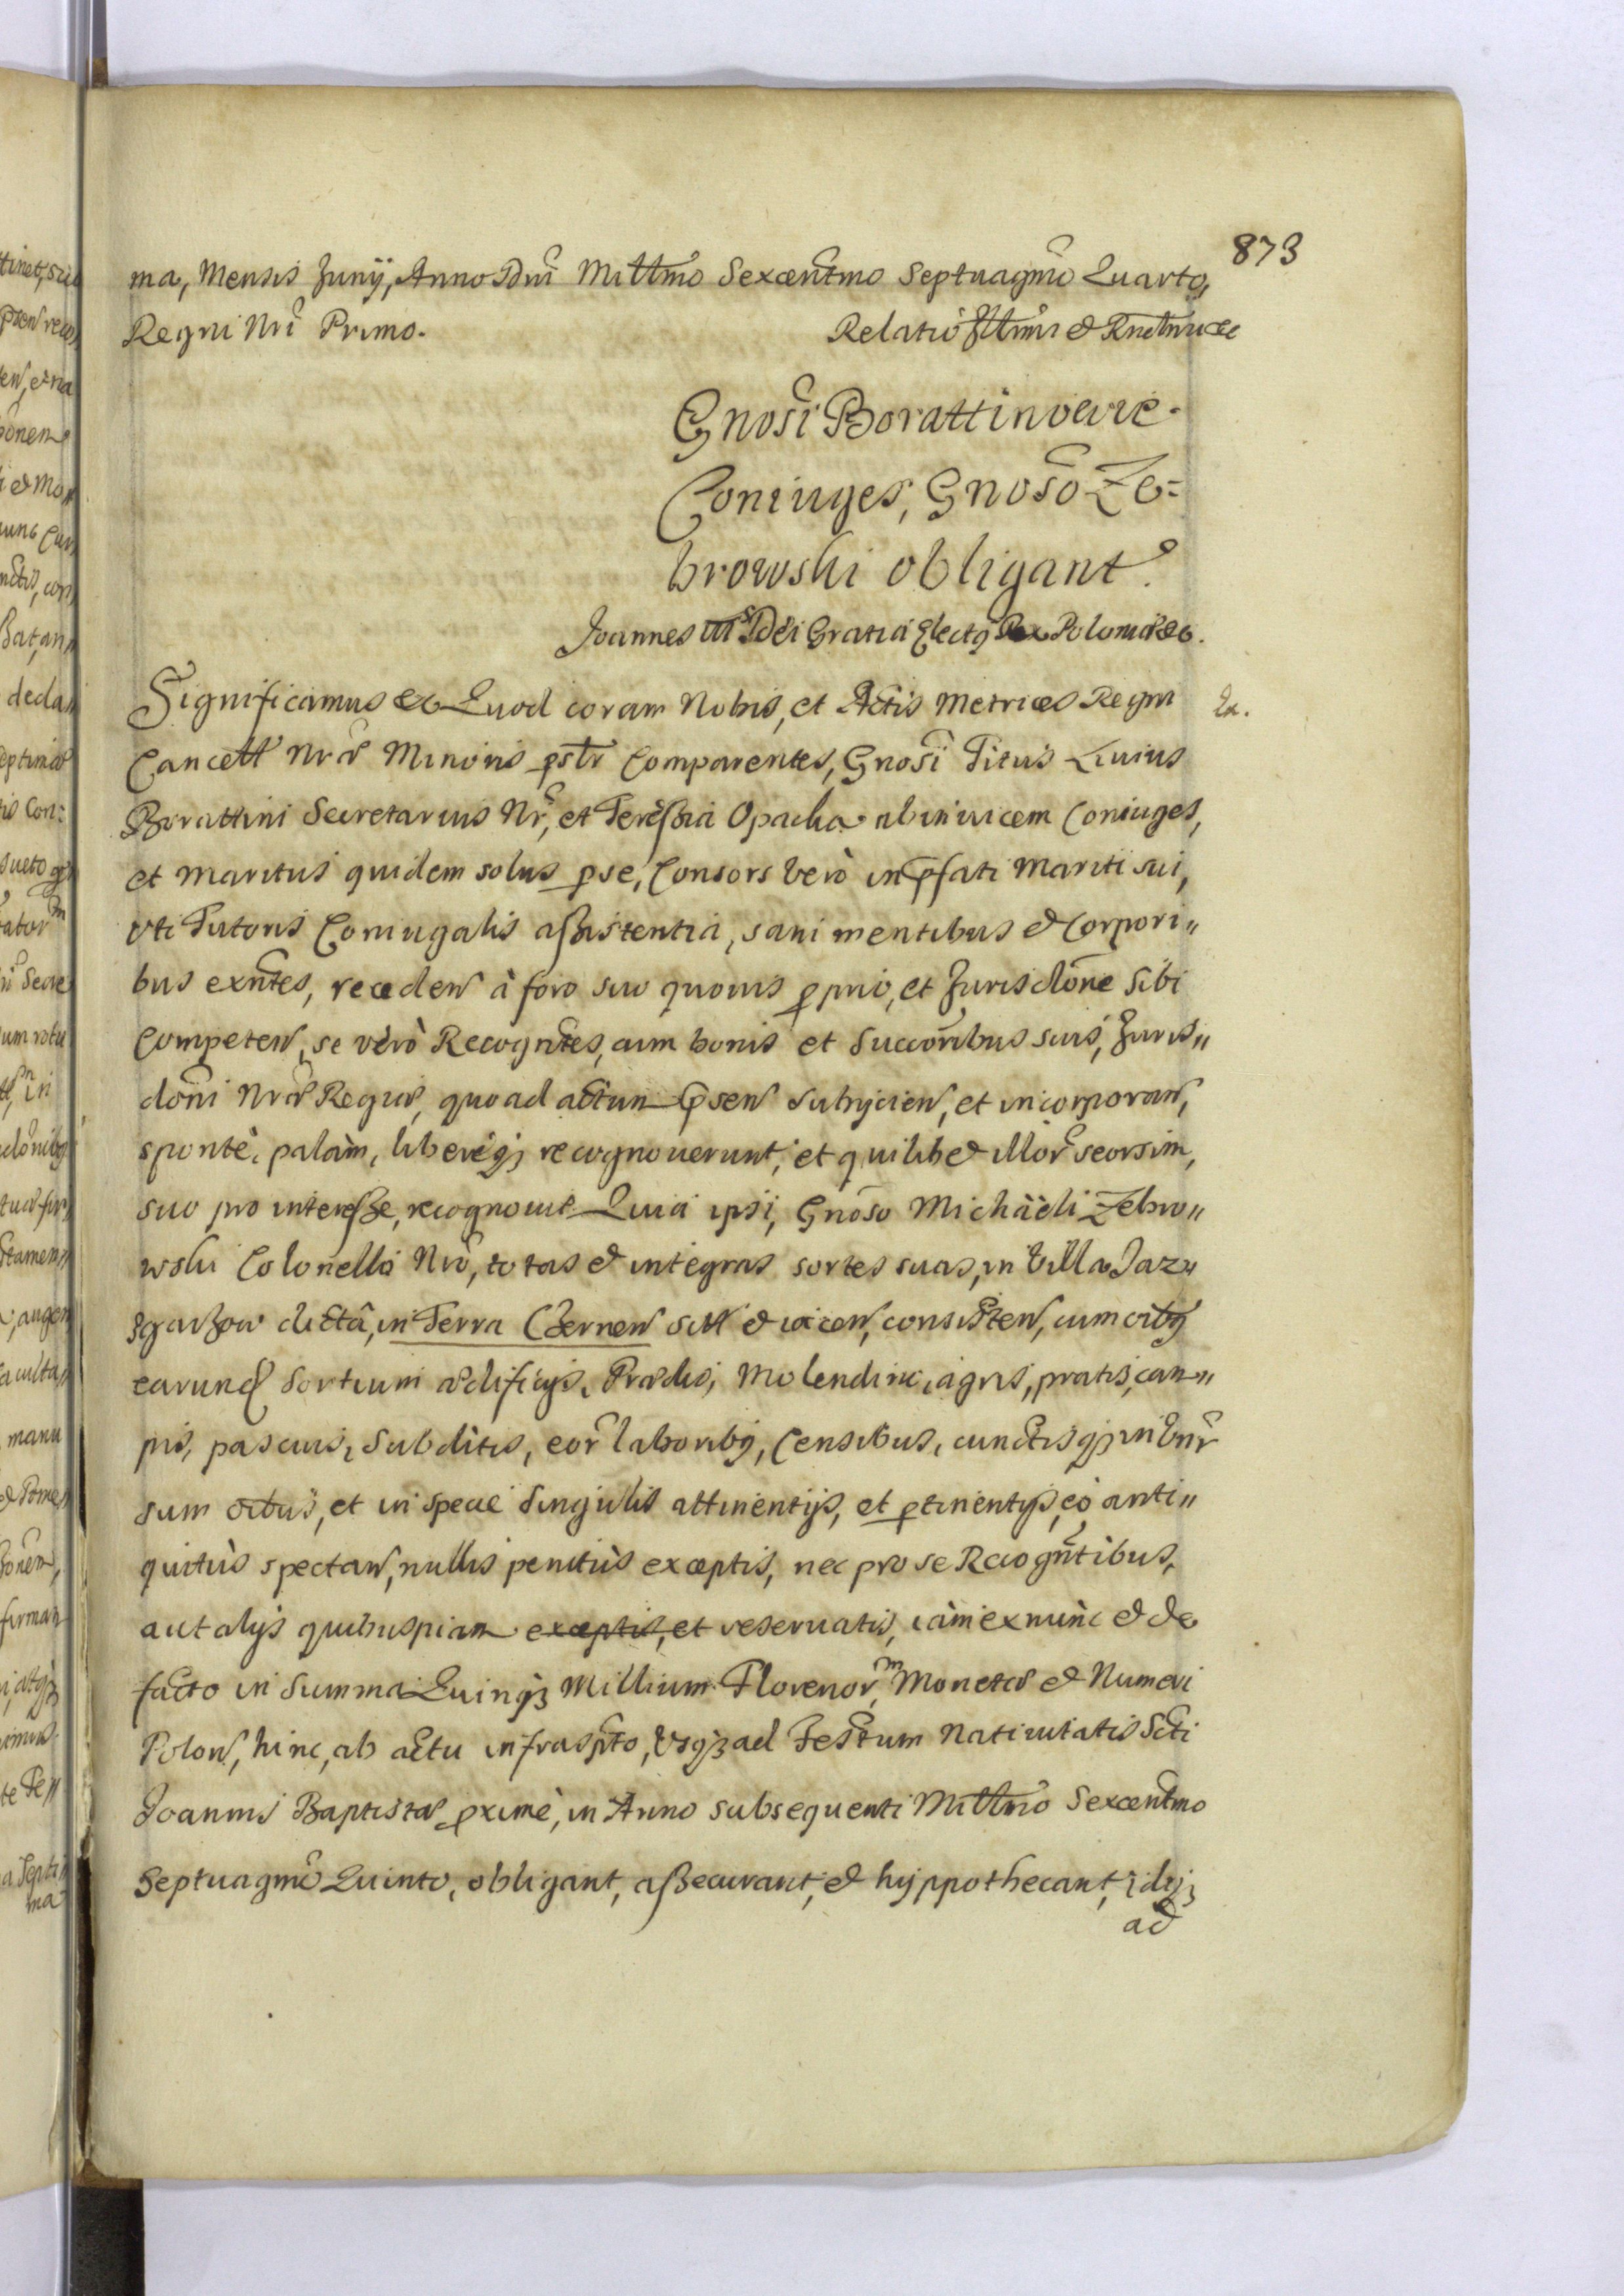 873
ma, Mensis Junij, Anno Dni Millmo Sexcentmo Septuagmo Quarto,
Regni Nri Primo. Relatio Illmi & Rndmi &c
Gnosi Borattinowie
Coniuges, Gnoso Ze=
browski obligant.
Joannes IIIs Dei Gratia Electus Rex Poloniæ &c.
Significamus &c Quod coram Nobis, et Actis Metrices Regni
Cancell Nræ Minoris psltr Comparentes, Gnosi Titus Liuius
Borattini Secretarius Nr, et Teressia Opacka abinuicem Coniuges,
et maritus quidem solus p se, Consors verò in pfati Mariti sui,
vti Tutoris Coniugalis assistentia, sani mentibus & Corpori„
bus exntes, receden à foro suo quouis pprio, et Jurisdone sibi
Competen, se verò Recogntes, cum bonis et Succoribus suis, Juris„
doni Nræ Regiæ, quoad actum psen subijcien, et incorporan,
spontè, palàm, liberéqz recognouerunt, et quilibet illor seorsim,
suo pro interesse, recognouit Quia ipsi, Gnoso Michaëli Zebro„
wski Colonello Nro, totas & integras sortes suas, in Villa Jaz„
zgarzow dictâ, in Terra Czernen sitt & iacen, consisten, cum oibq
earund Sortium ædificijs, Prædis, Molendinis, agris, pratis, cam„
pis, pascuis, Subditis, eor laboribq, Censibus, cunctisqz in Vnr
sum oibus, et in specie Singulis attinentijs, et ptinentijs, eò anti„
quitùs spectan, nullis penitùs exceptis, nec pro se Recogntibus,
aut alijs quibuspiam exceptis, et reseruatis, iàm ex nunc & de
facto in Summa Quinqz Millium Florenorm, Monetæ & Numeri
Polon, hinc, ab actu infraspto, Vsqz ad Festum Natiuitatis Scti
Joannis Baptistæ pximè, in Anno subsequenti Millmo Sexcentmo
Septuagmo Quinto, obligant, assecurant, & hyppothecant, idqz
ad